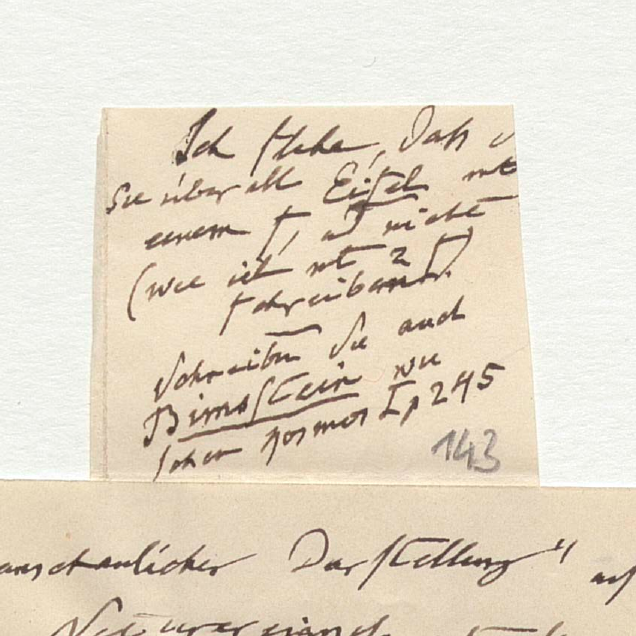 Ich flehe, dass
Sie überall Eifel mit
einem f, u nicht
(wie ich mit 2 f)
schreiben.
Schreiben Sie auch
Bimsstein wie
schon Kosmos I p 245
143
anschaulicher Darstellung" auf